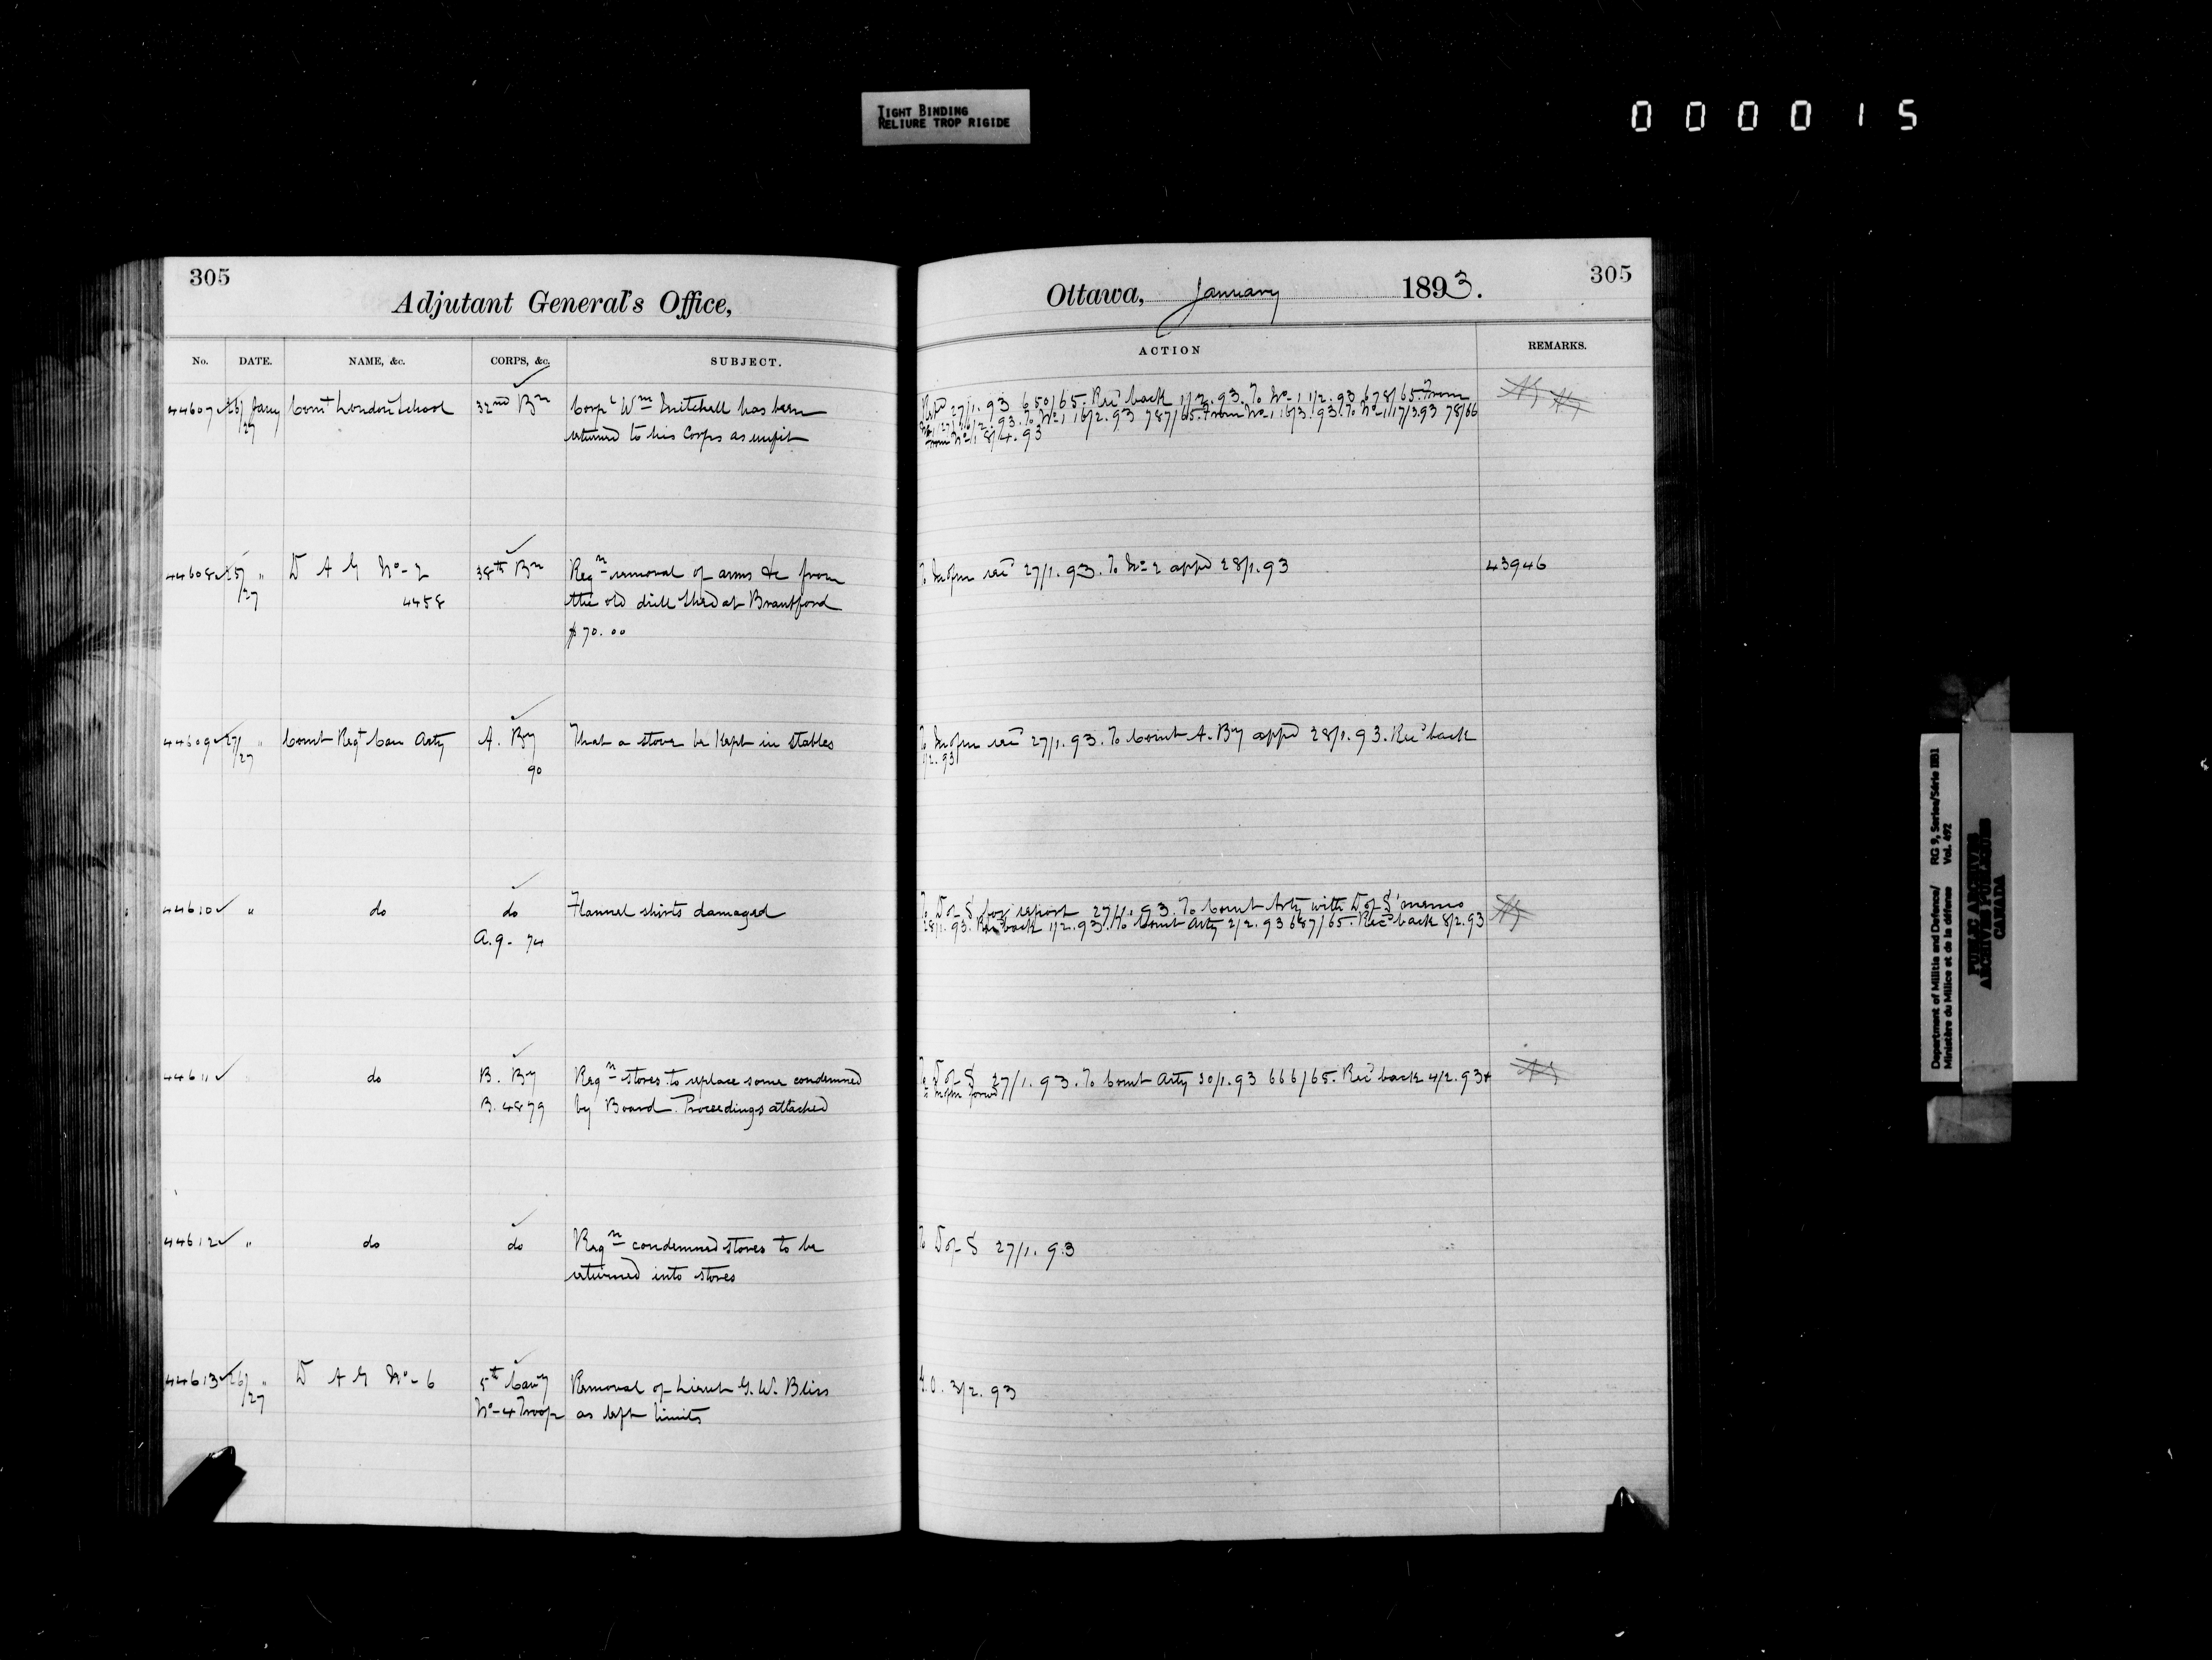 TIGHT BINDING
RELIURE TROP RIGIDE
000015
305
Adjutant General's Office,
No. DATE. NAME, &c. CORPS, &c. SUBJECT.
44607 25/ Jany Comt London School 32nd Bn Corpl Wm Mitchell has been
27 returned to his Corps as unfit
44608 25/ " D A G No-2 38th Bn Reqn removal of arms &c from
27 4458 the old drill shed at Brantford
$70.00
44609 27/ " Comt Regt Can Arty A. By That a stove be kept in stables
27 90
44610 " do do Flannel shirts damaged
A.g. 74
44611 do B. By Reqn stores to replace some condemned
B. 4879 by Board. Proceedings attached
44612 " do do Reqn condemned stores to be
returned into stores
44613 26/ " D A G No-6 5th Cavy Removal of Lieut G. W. Bliss
27 No-4 Troop as left limits
305
Ottawa, January 1893.
ACTION REMARKS.
27/1.93 650/65. Recd back 1/2.93. To No-1 1/2.93 678/65. From
/2.93. To No-1 16/2.93 787/65. From No-1 16/3.93. To No-1 17/3.93 78/66
from No-1 8/4.93
27/1.93. To No-2 appd 28/1.93 43946
27/1.93. To Comt A. By appd 28/1.93. Recd back
1/2.93
To D of S for report 27/1.93. To Comt Arty with D of S' memo
28/1.93. Recd back 1/2.93. To Comt Arty 2/2.93 687/65. Recd back 8/2.93
To D of S 27/1.93. To Comt Arty 30/1.93 666/65. Recd back 4/2.93 &
To D of S 27/1.93
G.O. 3/2.93
Department of Militia and Defence/ RG 9, Series/Série IIB1
Ministère du Milice et de la défense Vol. 492
PUBLIC ARCHIVES
ARCHIVES PUBLIQUES
CANADA